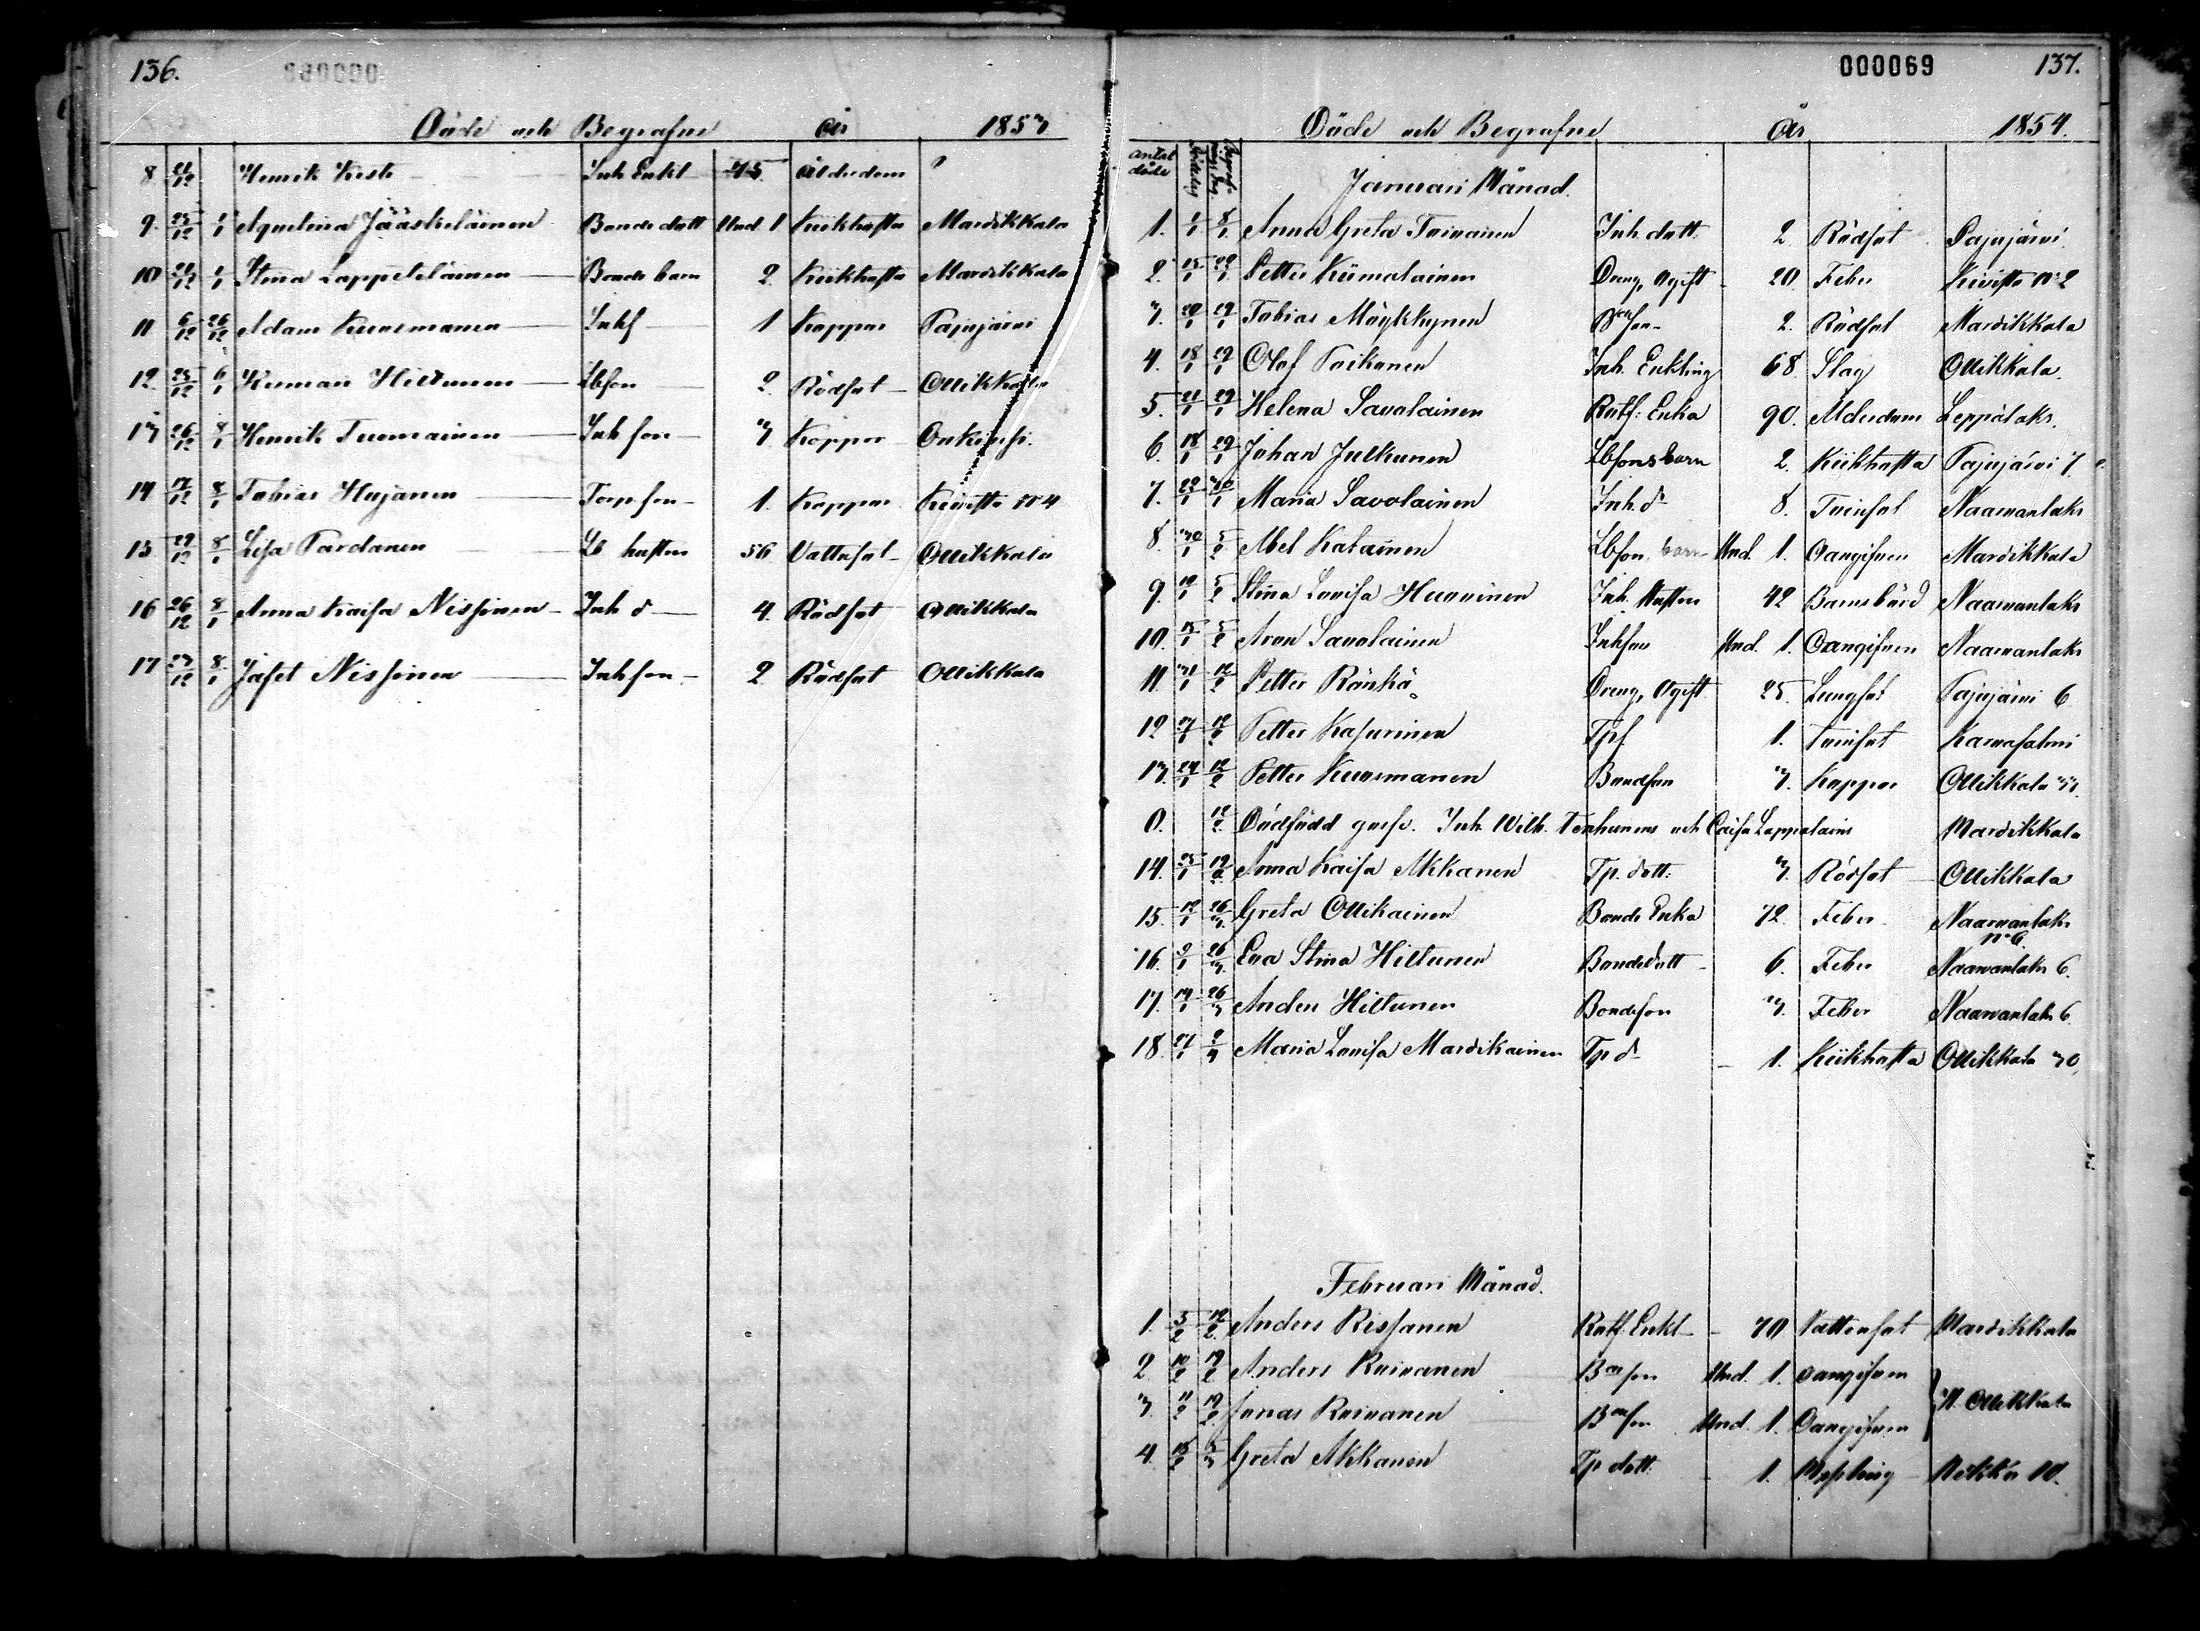 136.
Döde och Begrafne år 1853
8 21/12 Henrik Kesti Inh Enkl 75 ålderdom ?
9. 25/12 1/1 Aqvelina Jääskeläinen Bonde dott Und. 1 Kikhosta Mardikkala
10 21/12 1/1 Stina Lappeteläinen Bonde barn 2. Kikhosta Mardikkala
11 6/12 26/12 Adam Kuosmanen Inhs 1 Koppor Pajujärvi
12. 25/12 6/1 Herman Hiltunen Lbson 2. Rödsot Ollikkala
13 26/12 8/1 Henrik Tuomainen Inh son 3. Koppor
14 17/12 8/1 Tobias Hujanen Torp son 1. Koppor Keiristo No 4
15 29/12 8/1 Lisa Pardanen Lb hustru 56 Vattusot Ollikkala
16 26/12 8/1 Anna Kaisa Nissinen Inh d 4. Rödsot Ollikkala
17 23/12 8/1 Josef Nissinen Inh son 2 Rödsot Ollikkala
000069 137.
Döde och Begrafne År 1854.
antal döde
Januari Månad.
1. 1/1 8/1 Anna Greta Toivainen Inh. dott. 2. Rödsot Pajujärvi
2. 15/1 22/1 Petter Kiimalainen Dreng, Ogift 20 Feber Keiristo No 2
3. 20/1 29/1 Tobias Möykkynen Bdeson 2. Rödsot Mardikkala
4. 18/1 29/1 Olof Paikanen Inh. Enkling 68. Slag Ollikkala.
5. 21/1 29/1 Helena Savolainen Rotf: Enka 90. Ålderdom Leppälaks.
6. 18/1 29/1 Johan Julkunen Lbsonsbarn 2. Kikhosta Pajujärvi 7
7. 22/1 30/1 Maria Savolainen Inh. d 8. Tvinsot Naarvanlaks
8. 30/1 5/2 Abel Kataınen Lbson barn Und. 1. Oangifven Mardikkala
9. 19/1 5/2 Stina Lovisa Huuvinen Inh. Hustru 42 Barnsbörd Naarvanlaks
10. 15/1 5/2 Aron Savolainen Inhson Und. 1. Oangifven Naarvanlaks
11. 31/1 12/2 Petter Rönkä Dreng, Ogift 25. Lungsot Pajujärvi 6
12 27/1 12/2 Petter Kasurinen Tps 1. Tvinsot Karvasalmi
13. 24/1 12/2 Petter Kuosmanen Bondson 3. Koppor Ollikkala 33.
0. 12/2 Dödfödd gosse. Inh. Wilh. Tenhunens och Caisa Lappalains Mardikkala
14. 25/1 19/2 Anna Kaisa Akkanen Tp. dott: 3. Rödsot Ollikkala
15. 12/1 26/3 Greta Ollikainen Bonde Enka 72. Feber Naarvanlaks
No 6.
16. 9/1 26/3 Eva Stina Hiltunen Bondedott 6. Feber Naarvanlaks 6.
17. 14/1 26/3 Anders Hiltunen Bondeson 3. Feber Naarvanlaks 6
18. 27/1 2/4 Maria Lovisa Mardikainen Tp d 1. Kikhosta Ollikkala 30
Februari Månad.
1. 5/2 12/2 Anders Rissanen Rotf. Enkl 70 Vattensot Mardikkala
2. 10/2 19/2 Anders Roivanen Bdeson Und. 1. Oangifven
3. 11/2 19/2 Jonas Roivanen Bdeson Und. 1. Oangifven } N. Ollikkala
4 15/2 5/3 Greta Akkanen Tp dott. 1. Messling 10.